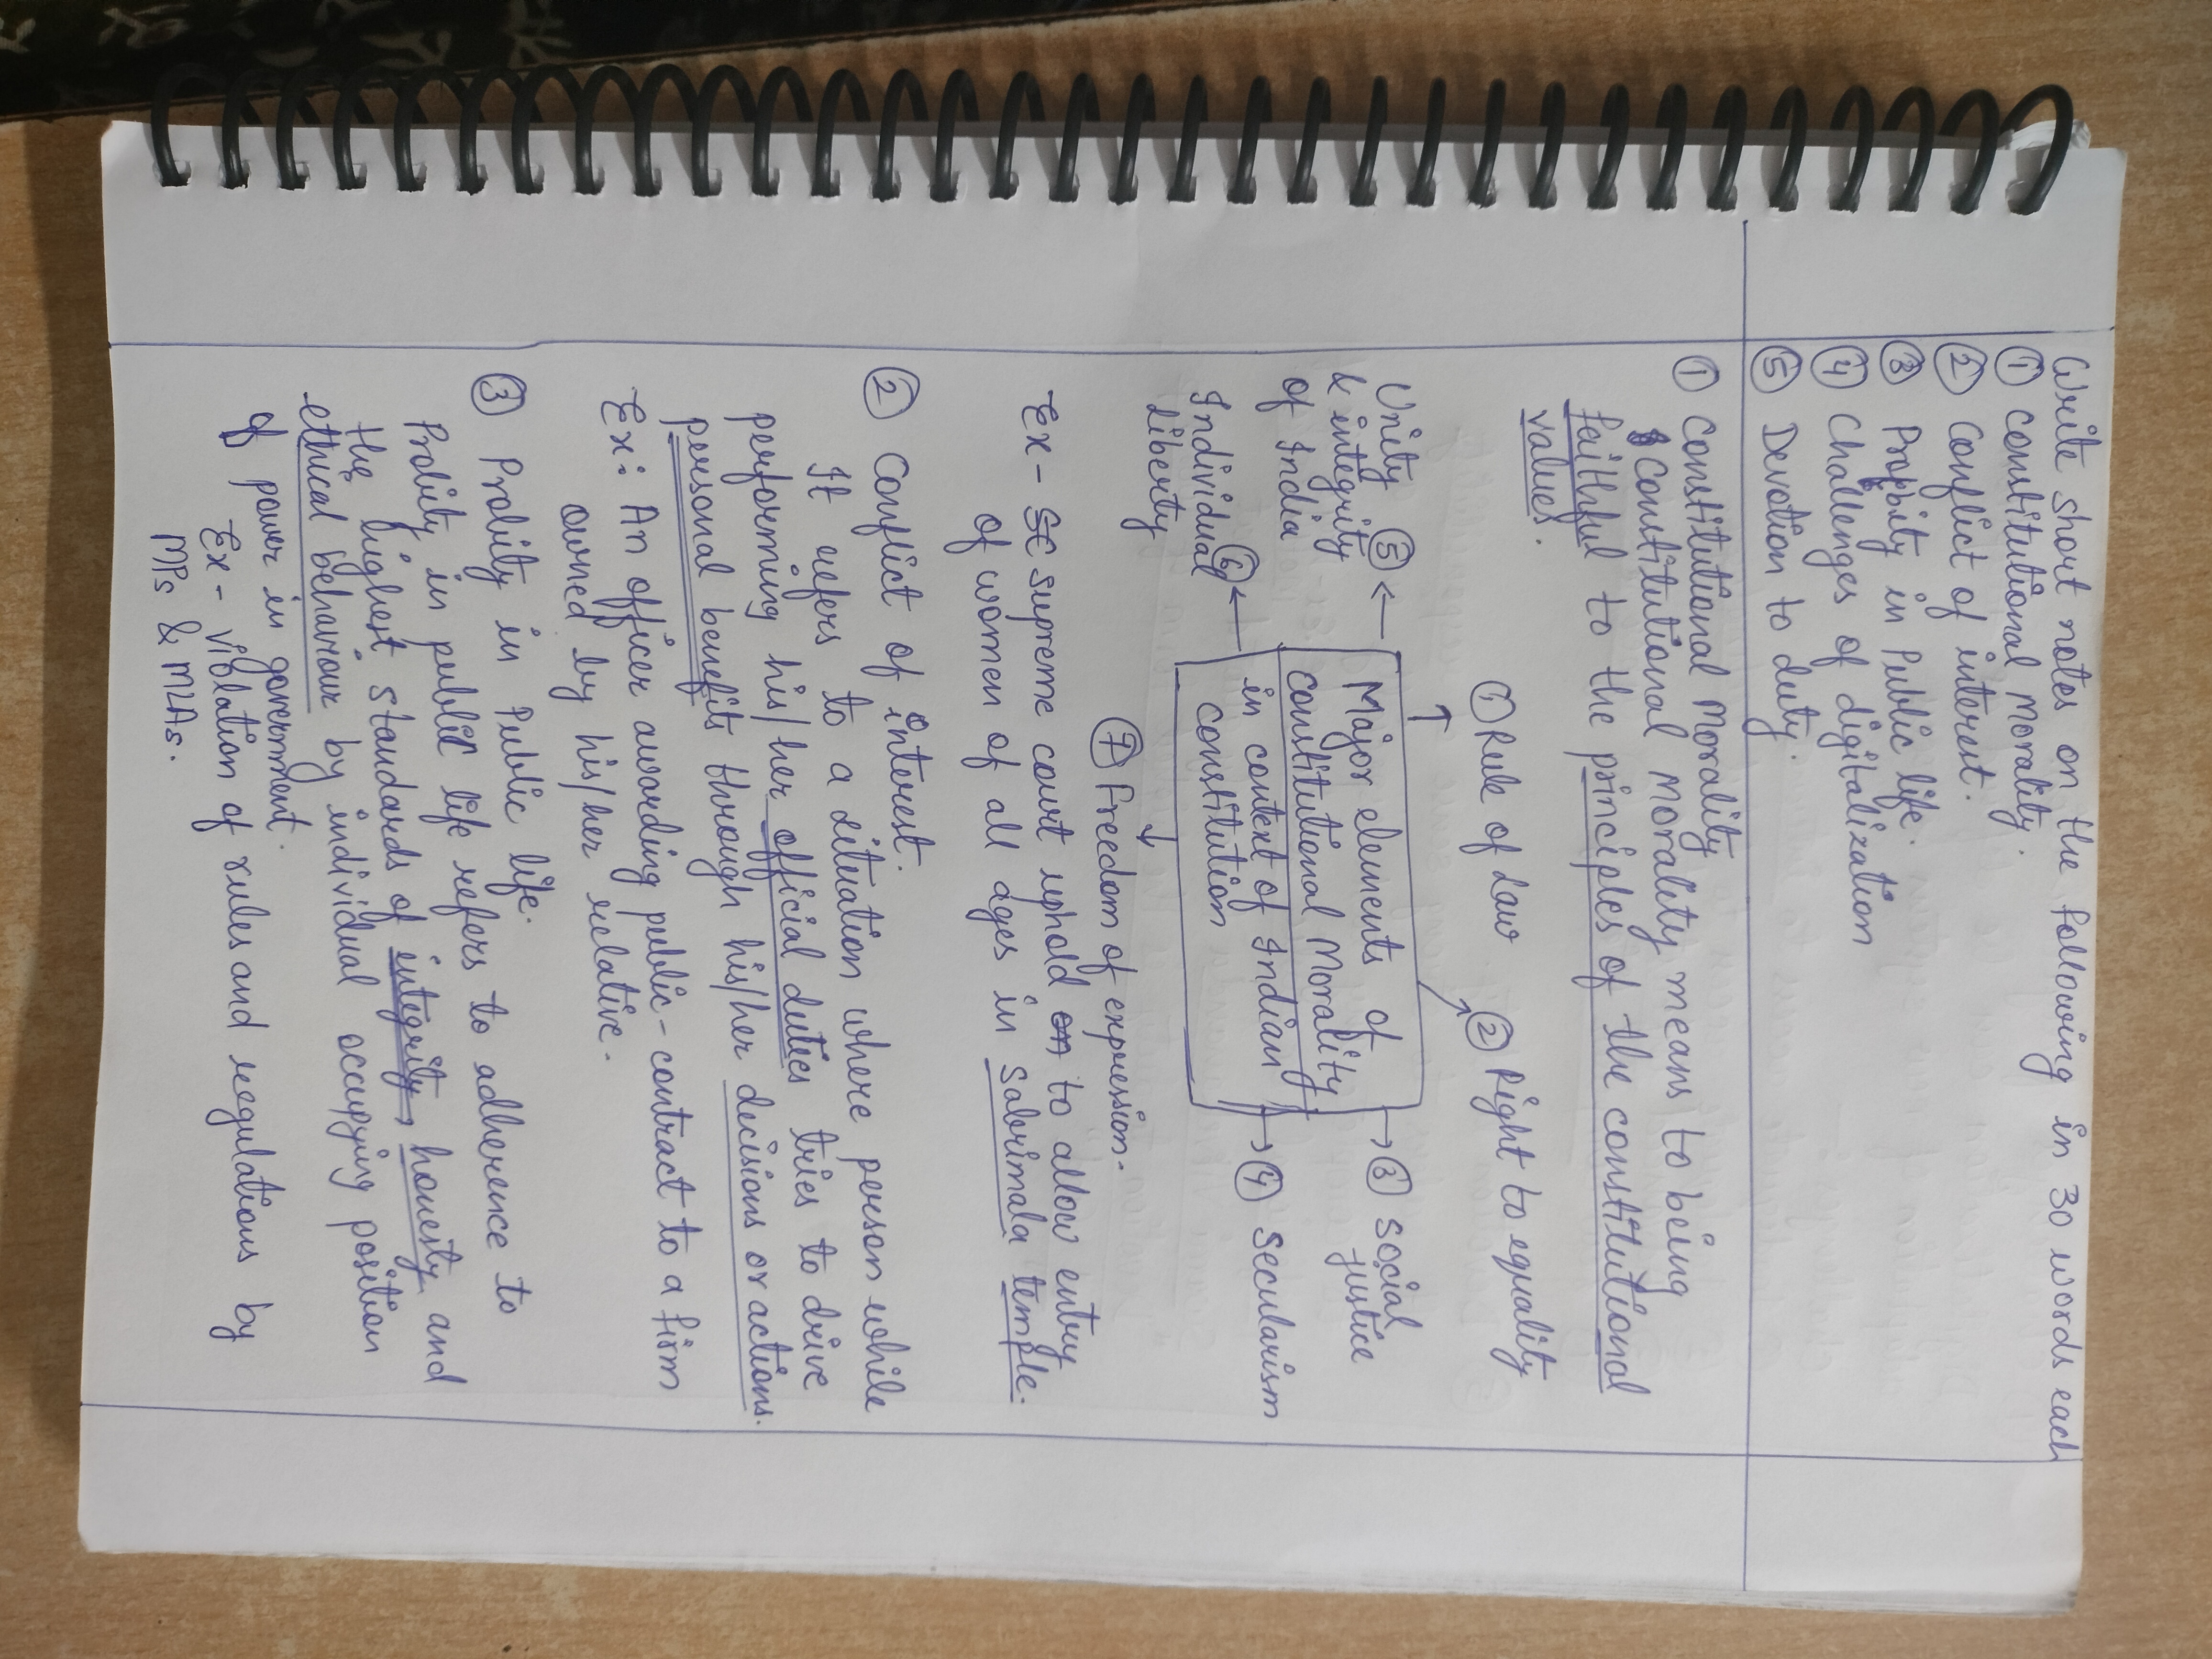 Write short notes on the following in 30 words each
① Constitutional Morality.
② Conflict of interest.
③ Probity in Public life.
④ Challenges of digitalization
⑤ Devotion to duty.
① Constitutional Morality
Constitutional Morality means to being
faithful to the principles of the constitutional
values.
① Rule of Law
② Right to equality
Unity ⑤
& integrity
of India
Major elements of
constitutional Morality
in context of Indian
constitution
③ Social
justice
Individual ⑥
liberty
④ Secularism
⑦ Freedom of expression.
Ex - Supreme court uphold to allow entry
of women of all ages in Sabrimala temple.
② Conflict of interest.
It refers to a situation where person while
performing his/her official duties tries to drive
personal benefits through his/her decisions or actions.
Ex: An officer awarding public-contract to a firm
owned by his/her relative.
③ Probity in Public life.
Probity in public life refers to adherence to
the highest standards of integrity, honesty and
ethical behaviour by individual occupying position
of power in government.
Ex - violation of rules and regulations by
MPs & MLAs.